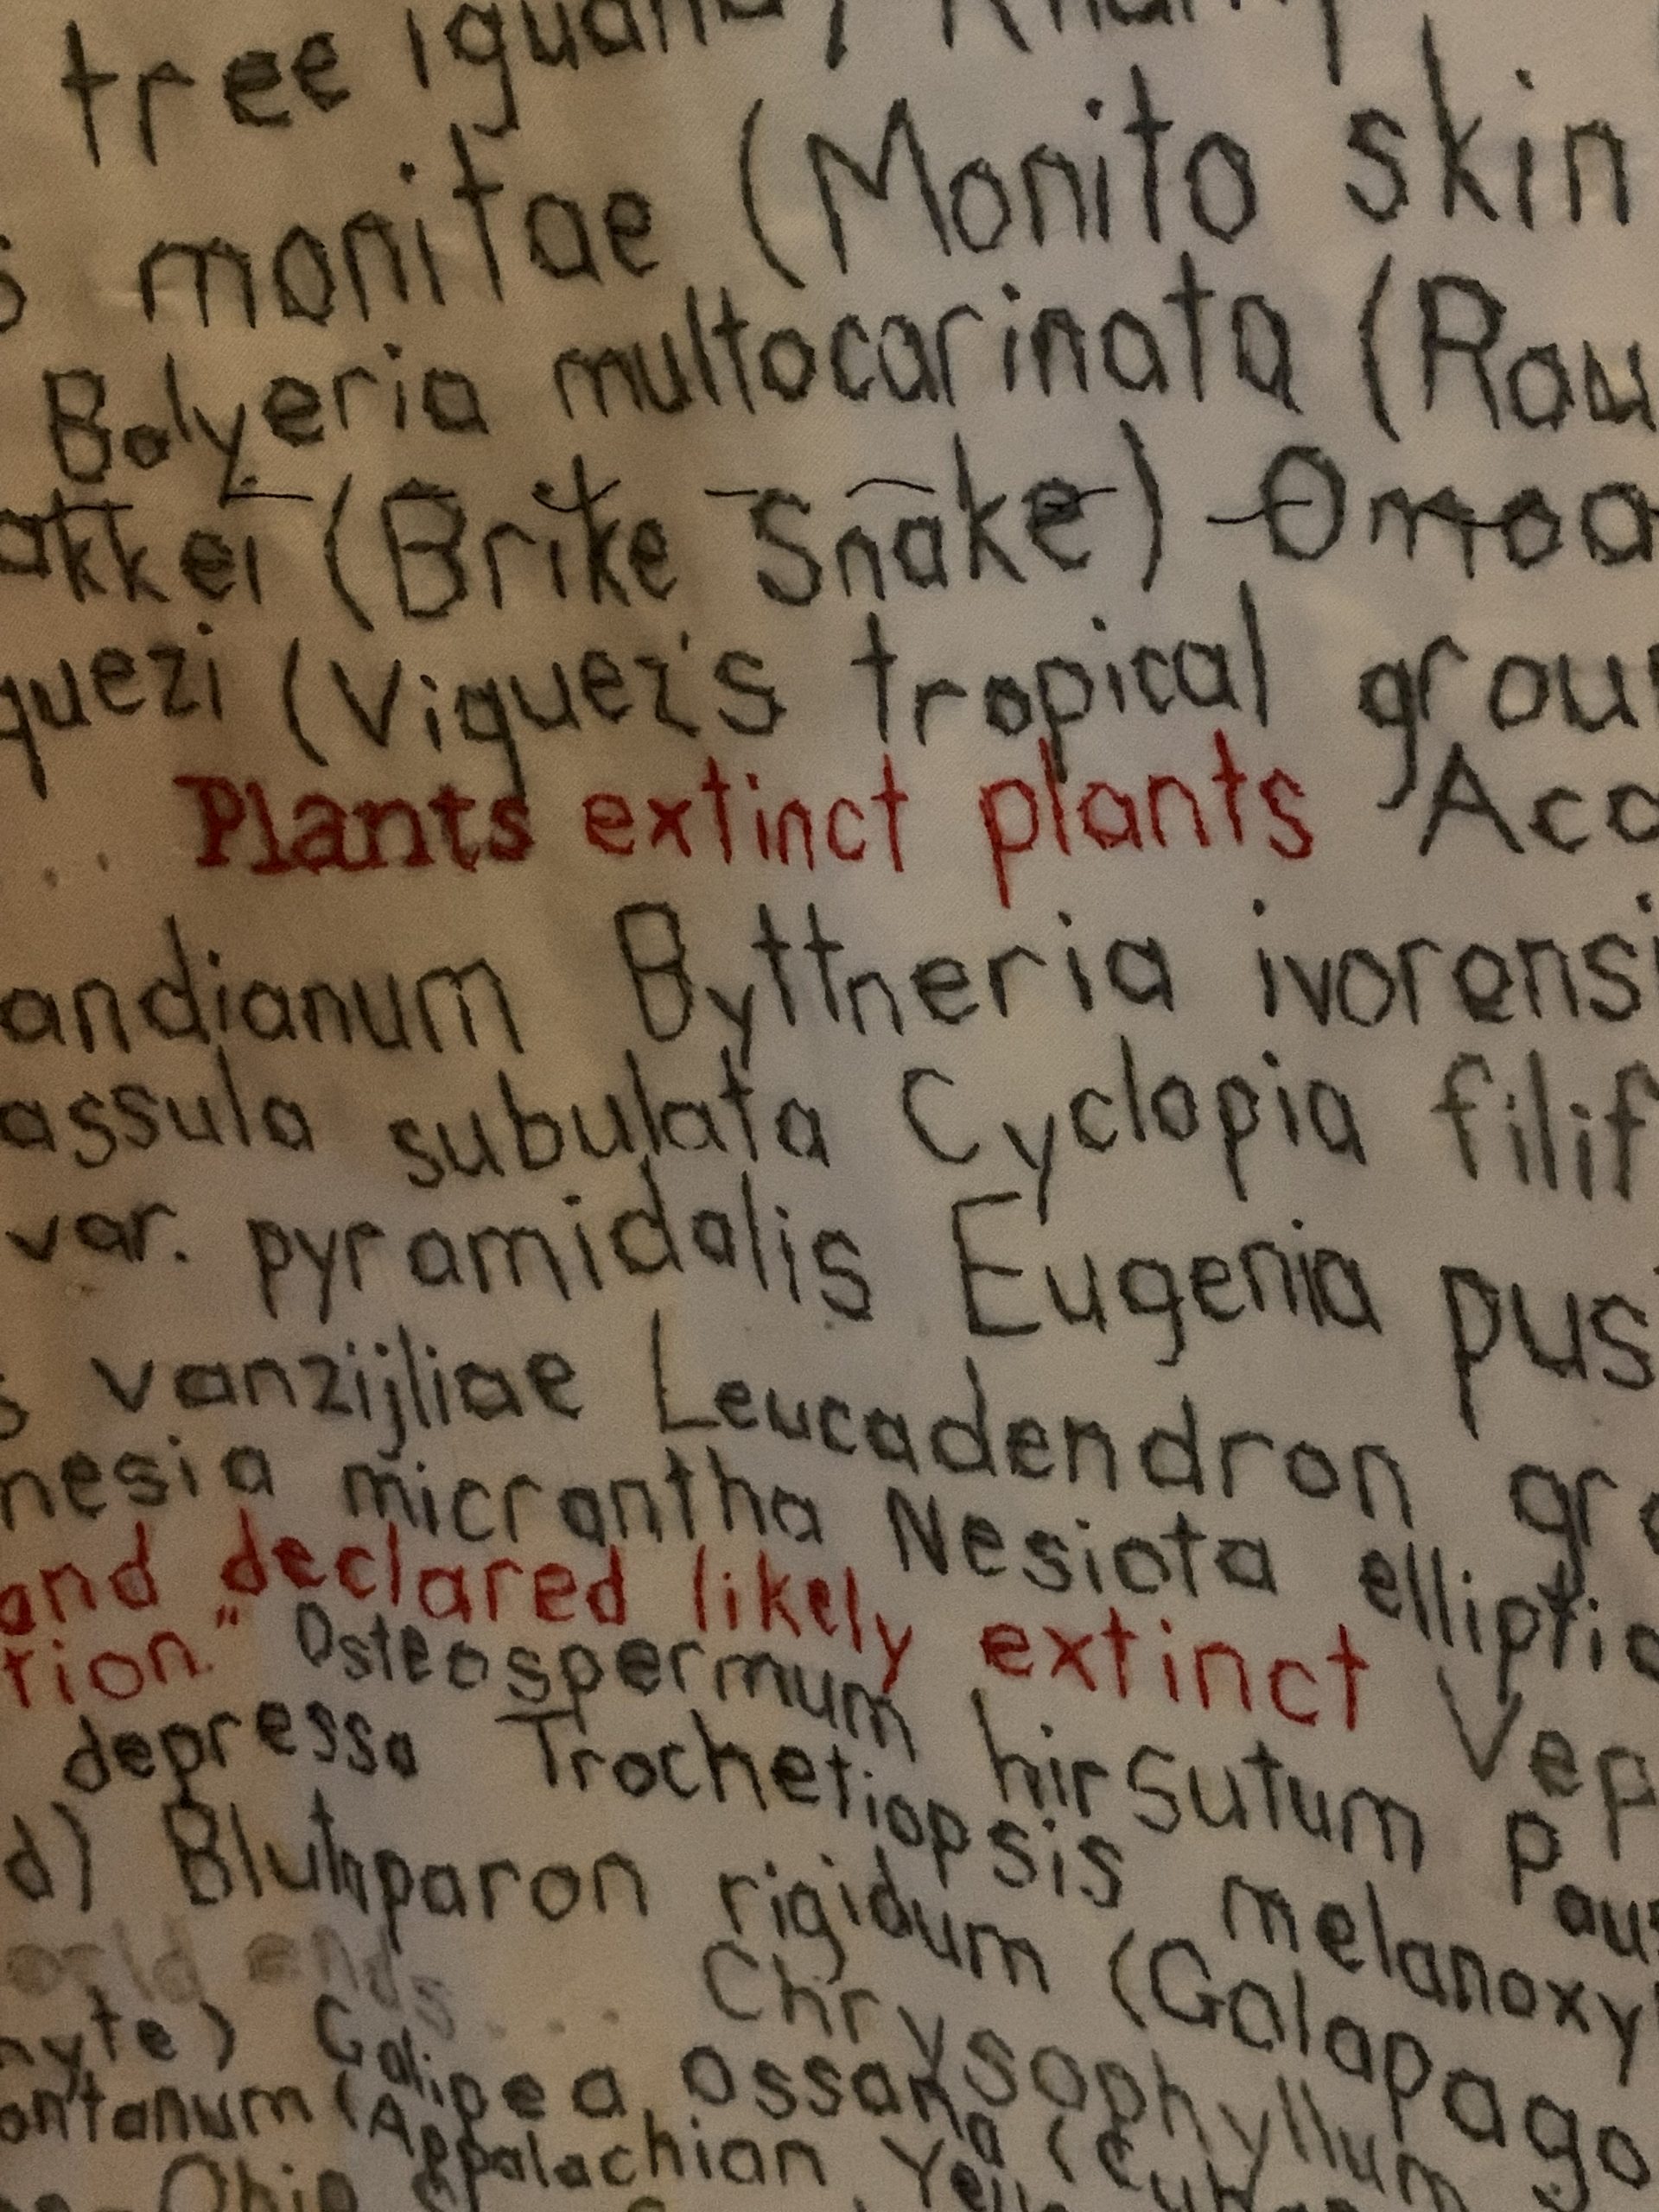 tree iguana)
monitae (Monito skin
Bolyeria multocarinata (Rou
akkei (Brike Snake) Omoa
quezi (Viquez's tropical grou
... Plants extinct plants Aca
andianum Byttneria ivorensi
assula subulata Cyclopia filif
var. pyramidalis Eugenia pus
s vanzijliae Leucadendron gr
nesia micrantha Nesiota elliptic
and declared likely extinct Vep
tion." Osteospermum hirsutum Pau
depressa Trochetiopsis melanoxy
d) Blutaparon rigidum (Galapago
orld ends.... Chrysophyllum
hyte) Galipea ossana (Cub
ontanum (Appalachian Yell
Ohio